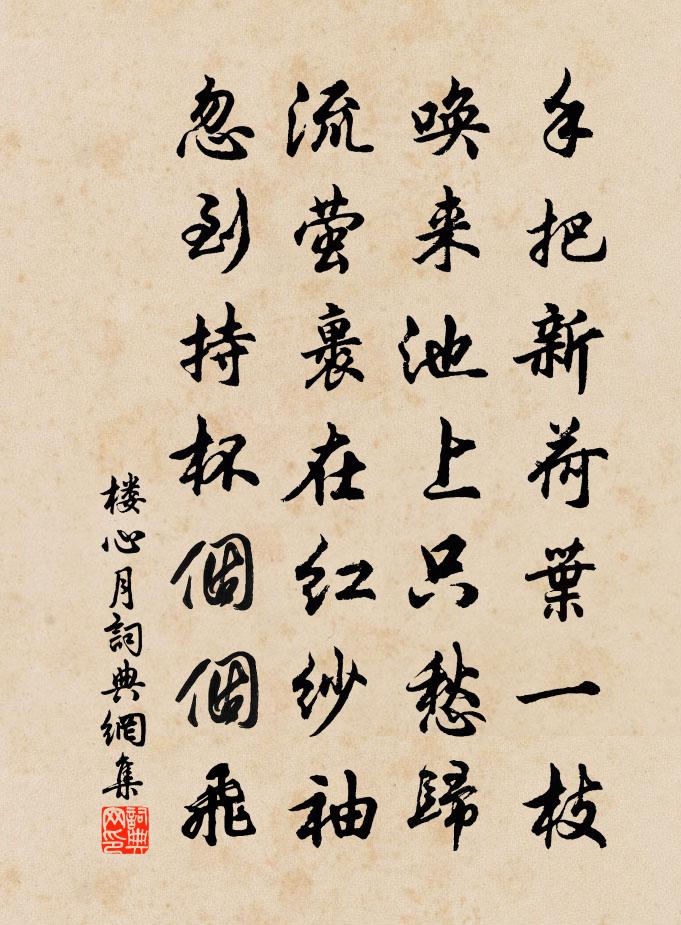 手把新荷葉一枝
喚来池上只愁歸
流螢裹在紅紗袖
忽到持杯個個飛
楼心月詞典網集
詞典网印